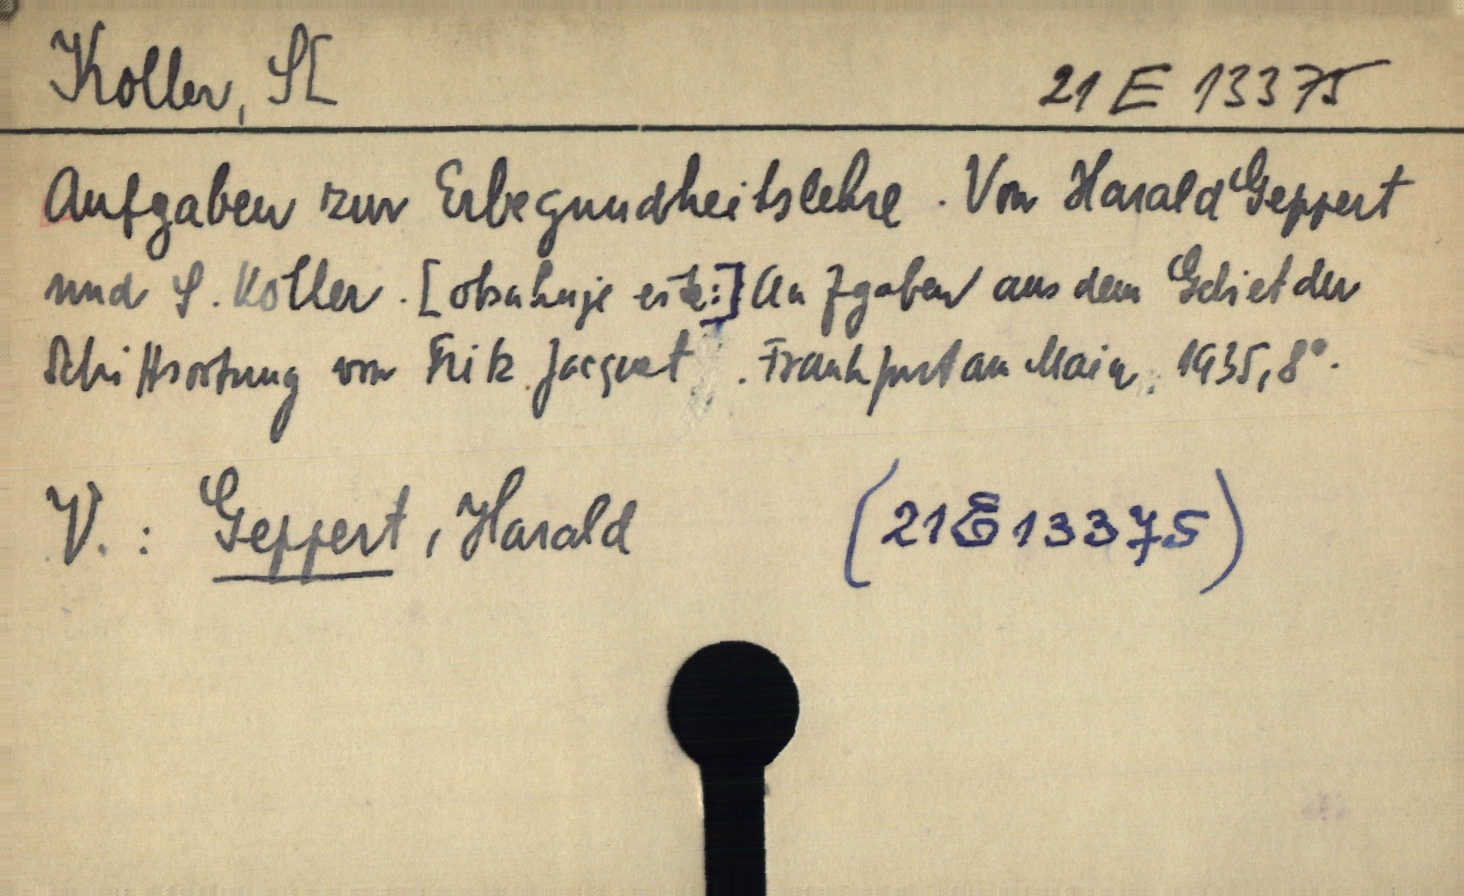 Koller, S[
21 E 13375
Aufgaben zur Erbegundheitslehre. Von Harald Geppert
und S. Koller. [obsahuje ještě:] Aufgaben aus dem Gebiet der
Schiffsortung von Fritz Jacquet. Frankfurt am Main, 1935, 8°.
V.: Geppert, Harald
(21E13375)